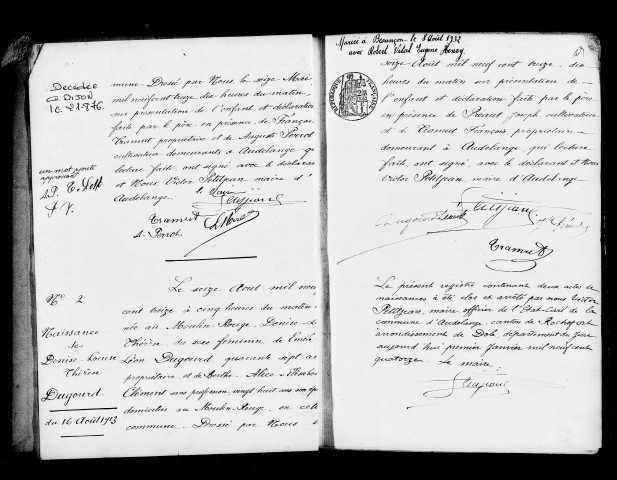 Décédée
à DIJON
le 21-8-76
mune. Dressé par Nous, le seize Mars
mil neuf cent treize dix heures du matin,
sur présentation de l'enfant et déclaration
faite par le père en présence de François
Tramut propriétaire et de Auguste Perrot
cultivateur demeurants à Audelange qui
lecture faite, ont signé avec le déclarant
et Nous Victor Petitjean maire d'
Audelange. le Maire
un mot ajouté
approuvé
Petitjean
Tramut
A. Perrot
N° 2
Naissance
de
Denise Louise
Thérèse
Dugourd
du 16 Août 1913
Le seize Août mil neuf
cent treize à cinq heures du matin
née au Moulin-Rouge, Denise
Thérèse du sexe féminin de
Léon Dugourd, quarante sept ans
propriétaire et de Berthe-Alice
Clément sans profession, vingt huit ans son
domiciliés au Moulin-Rouge, en cette
commune. Dressé par Nous
Mariée à Besançon le 8 Août 1932
avec Robert Vital Eugène Henry.
seize Août mil neuf cent treize, dix
heures du matin sur présentation de
l'enfant et déclaration faite par le père
en présence de Joseph cultivateur
et Tramut François propriétaire
demeurant à Audelange, qui lecture
faite ont signé, avec le déclarant et Nous
Victor Petitjean, maire d'Audelange
Petitjean
Dugourd
Tramut
Le présent registre contenant deux actes de
naissances à été clos et arrêté par nous Victor
Petitjean, maire officier de l'Etat-Civil de la
commune d'Audelange, canton de Rochefort
arrondissement de Dole département du Jura
aujourd'hui premier Janvier mil neuf cent
quatorze. Le maire:
Petitjean